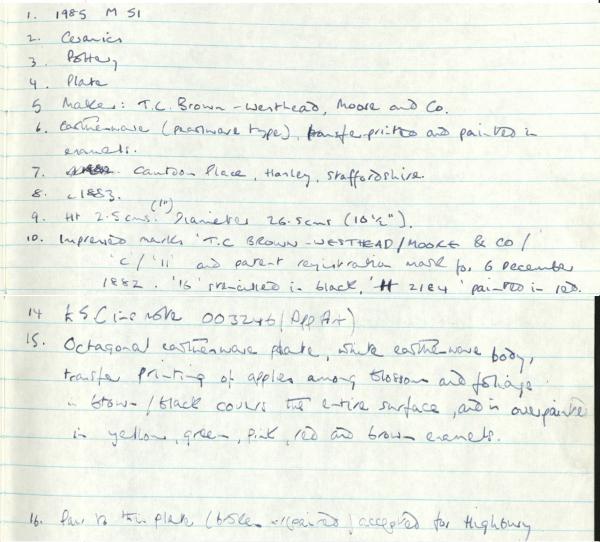 1. 1985 M 51
2. Ceramics
3. Pottery
4. Plate
5 Maker: T.C. Brown-Westhead, Moore and Co.
6. Earthenware (pearlware type), transfer printed and painted in
enamels.
7. Cauldon Place, Hanley, Staffordshire.
8. c1883.
9. Ht 2.5cms. (1") Diameter 26.5cms (10½").
10. Impressed marks 'T.C BROWN-WESTHEAD/MOORE & CO/
'C'/'11' and patent registration mark for 6 December
1882. '16' stencilled in black, 'H 2184' painted in red.
14 £5 (inc note 003246 (App Art)
15. Octagonal earthenware plate, white earthenware body,
transfer printing of apples among blossom and foliage
in brown/black covers the entire surface, and is overpainted
in yellow, green, pink, red and brown enamels.
16. Pair to this plate (broken repaired) accepted for Highbury